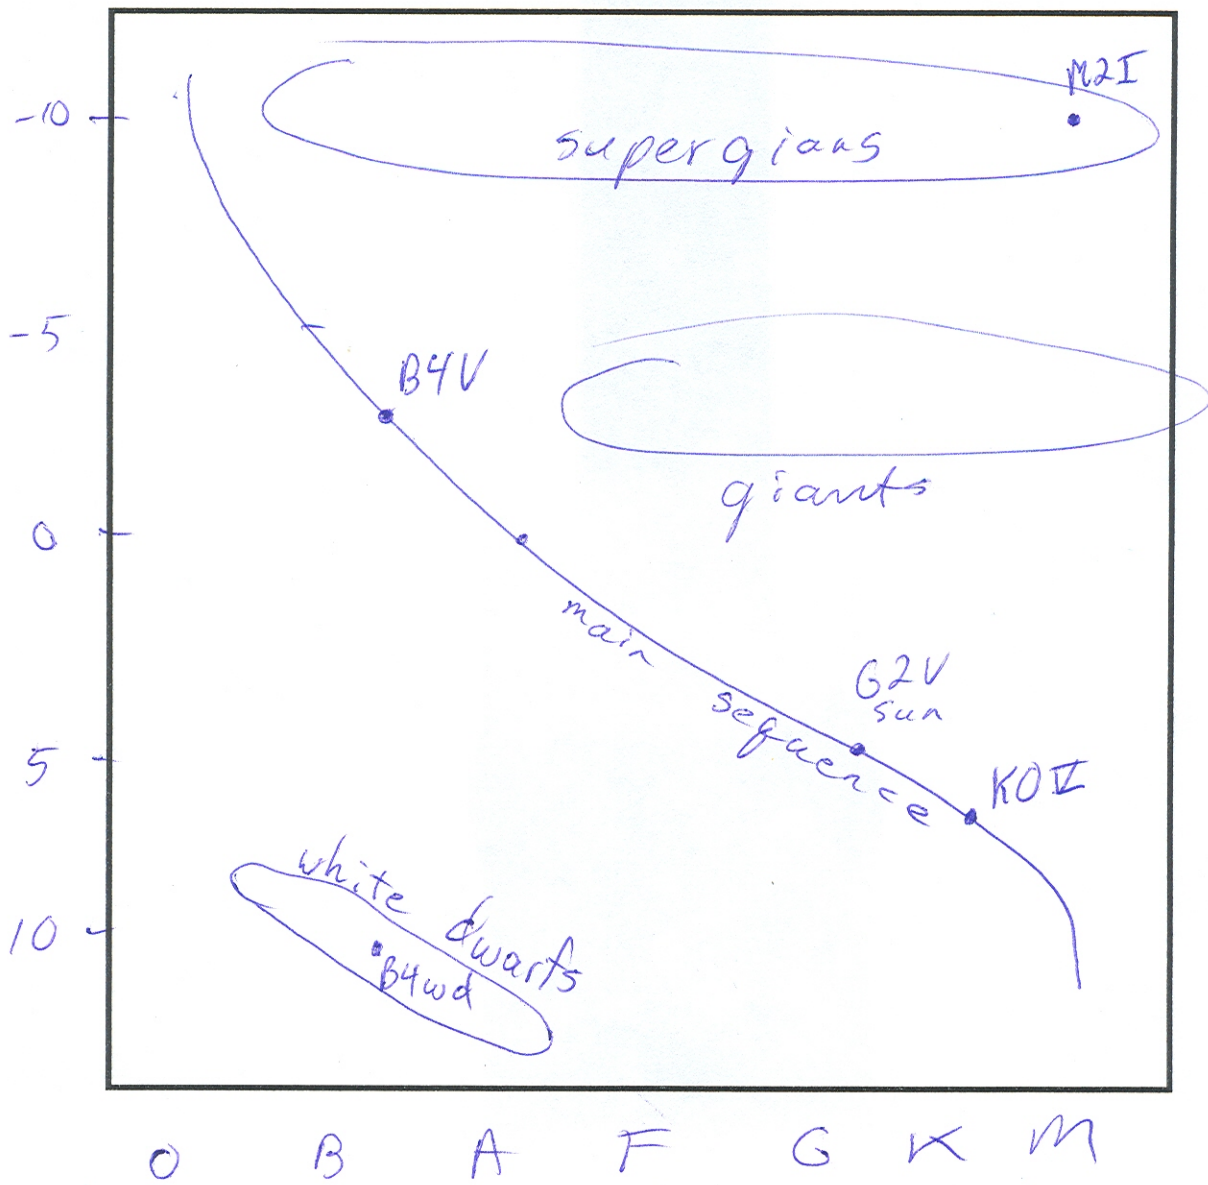 M2I
-10
supergians
-5
B4V
giants
0
main
sequence
G2V
sun
5
K0V
white dwarfs
10
B4wd
O B A F G K M